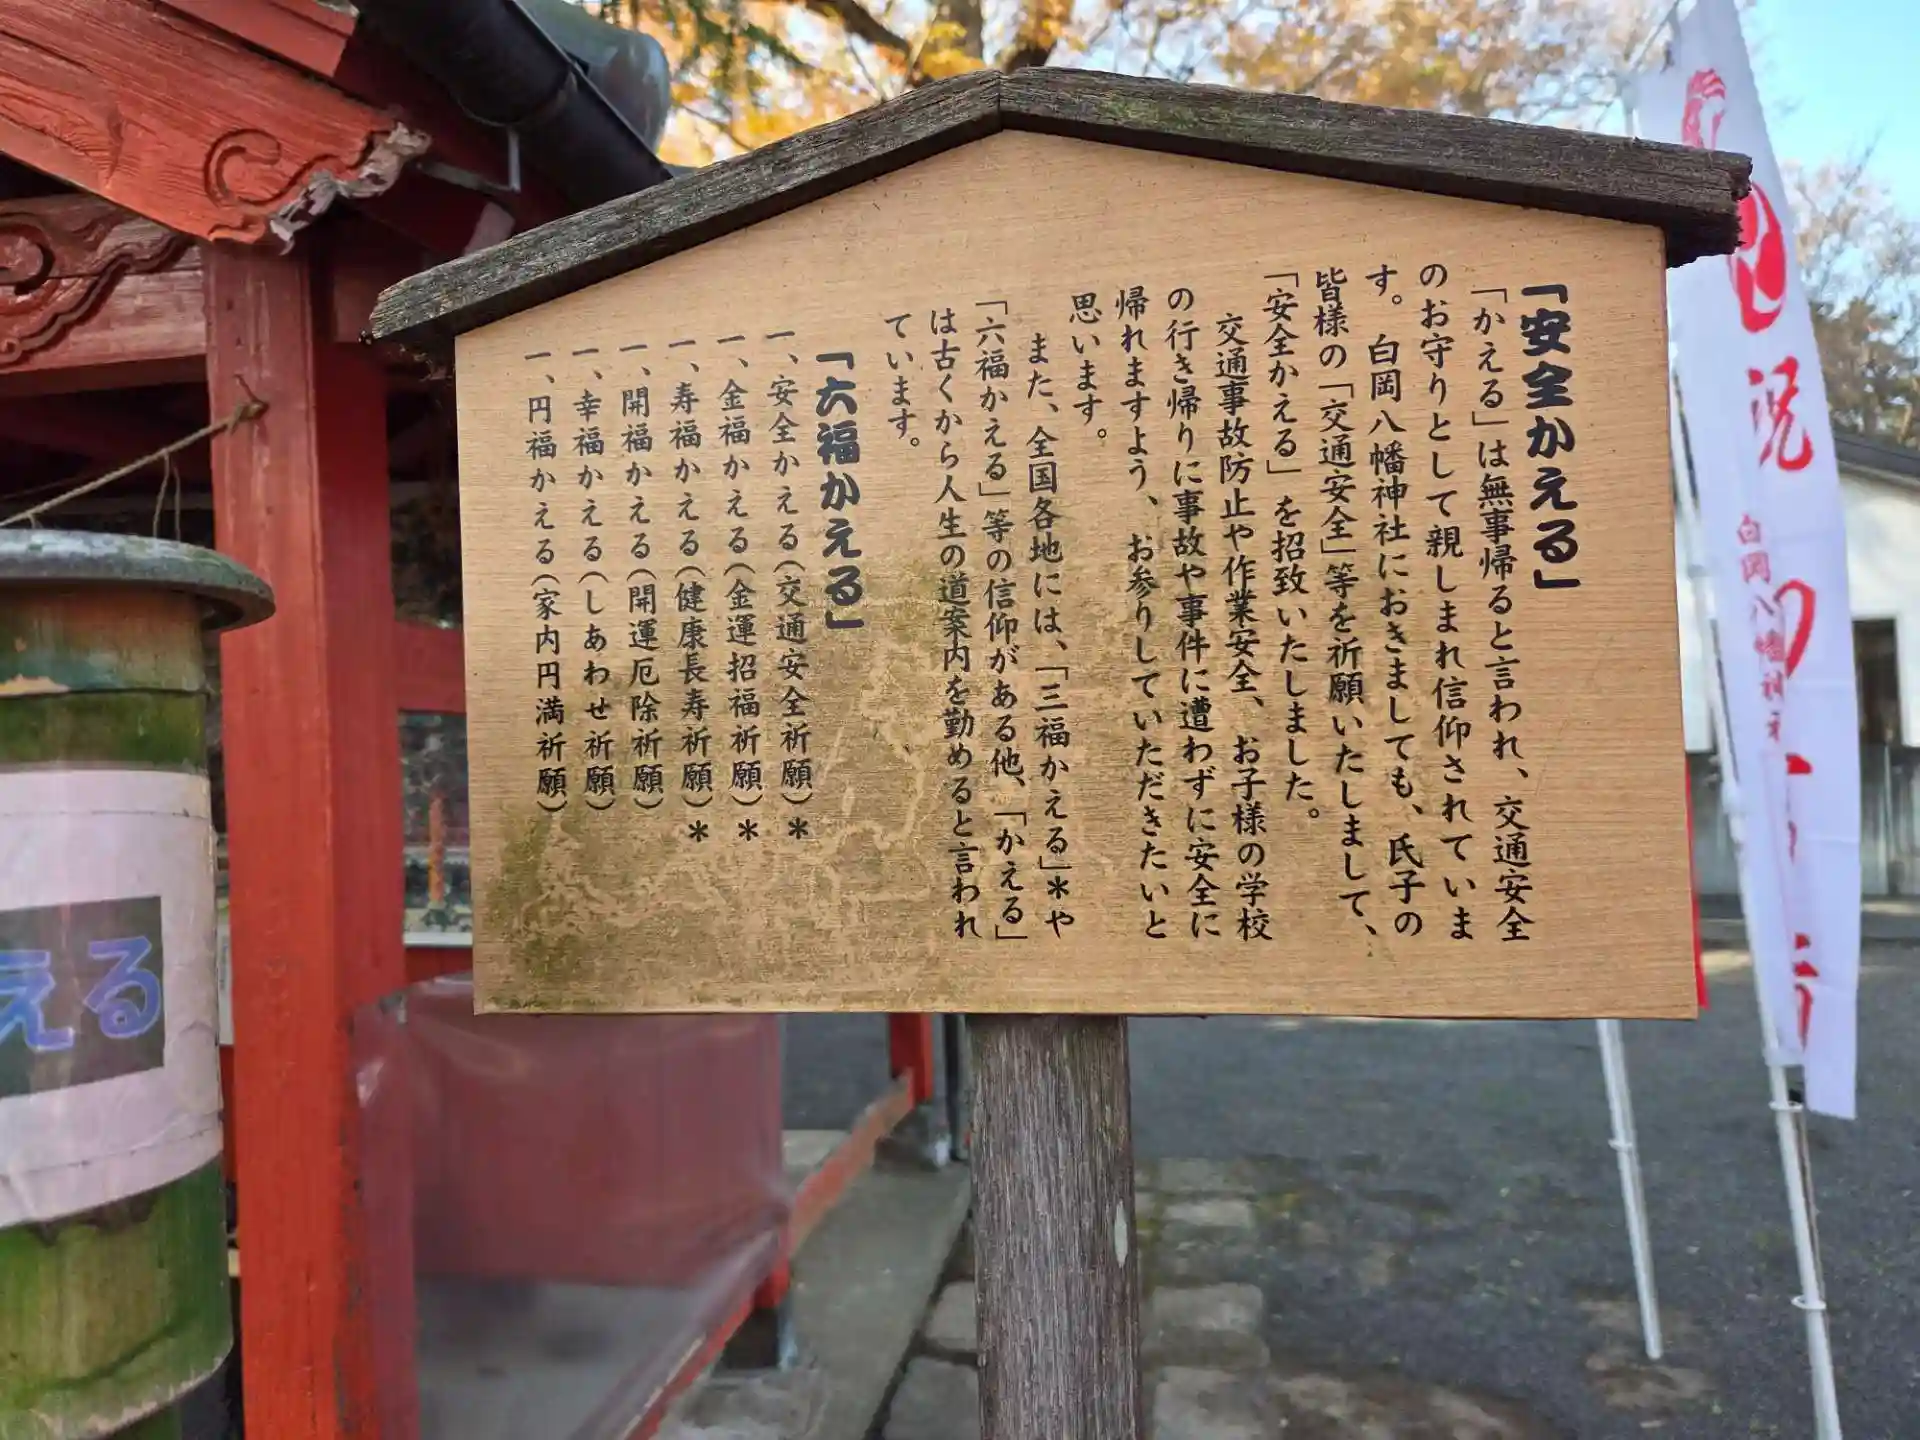 「安全かえる」
「かえる」は無事帰ると言われ、交通安全
のお守りとして親しまれ信仰されていま
す。白岡八幡神社におきましても、氏子の
皆様の「交通安全」等を祈願いたしまして、
「安全かえる」を招致いたしました。
交通事故防止や作業安全、お子様の学校
の行き帰りに事故や事件に遭わずに安全に
帰れますよう、お参りしていただきたいと
思います。
また、全国各地には、「三福かえる」＊や
「六福かえる」等の信仰がある他、「かえる」
は古くから人生の道案内を勤めると言われ
ています。
「六福かえる」
一、安全かえる（交通安全祈願）＊
一、金福かえる（金運招福祈願）＊
一、寿福かえる（健康長寿祈願）＊
一、開福かえる（開運厄除祈願）
一、幸福かえる（しあわせ祈願）
一、円福かえる（家内円満祈願）
える
白岡八幡神社